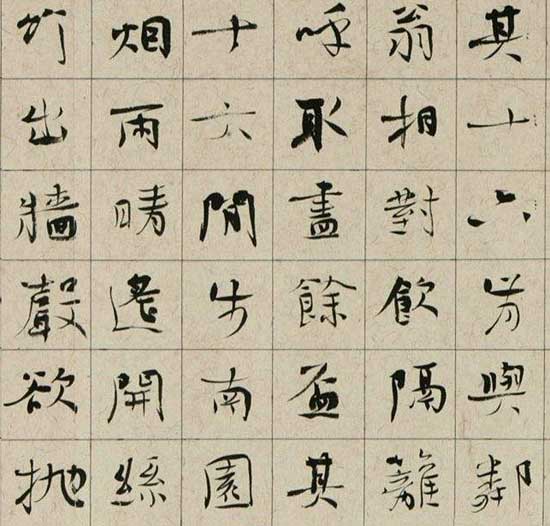 其十六肯與鄰
翁相對飲隔籬
呼取盡餘盃其
十六閒步南園
烟雨晴遙開絲
竹出牆聲欲拋